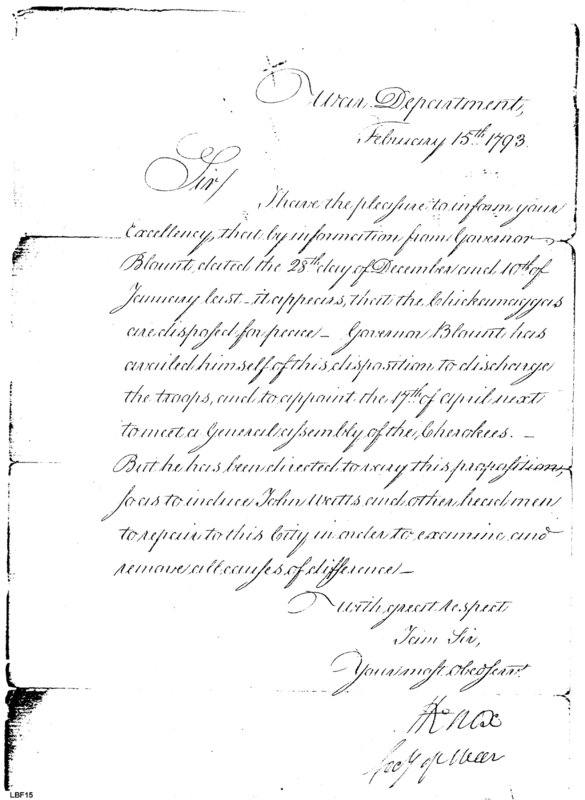 War Department,
February 15th 1793.
Sir/
I have the pleasure to inform your
Excellency, that by information from Governor
Blount, dated the 28th day of December and 10th of
January last – it appears, that the Chickamaggas
are disposed for peace – Governor Blount has
availed himself of this disposition to discharge
the troops, and to appoint the 17th of April next
to meet a General assembly of the Cherokees. –
But he has been directed to vary this proposition,
so as to induce John Watts and other head men
to repair to this City in order to examine and
remove all causes of difference –
With great respect
I am Sir,
Your most obed servt
H Knox
Secy of War
LBF15